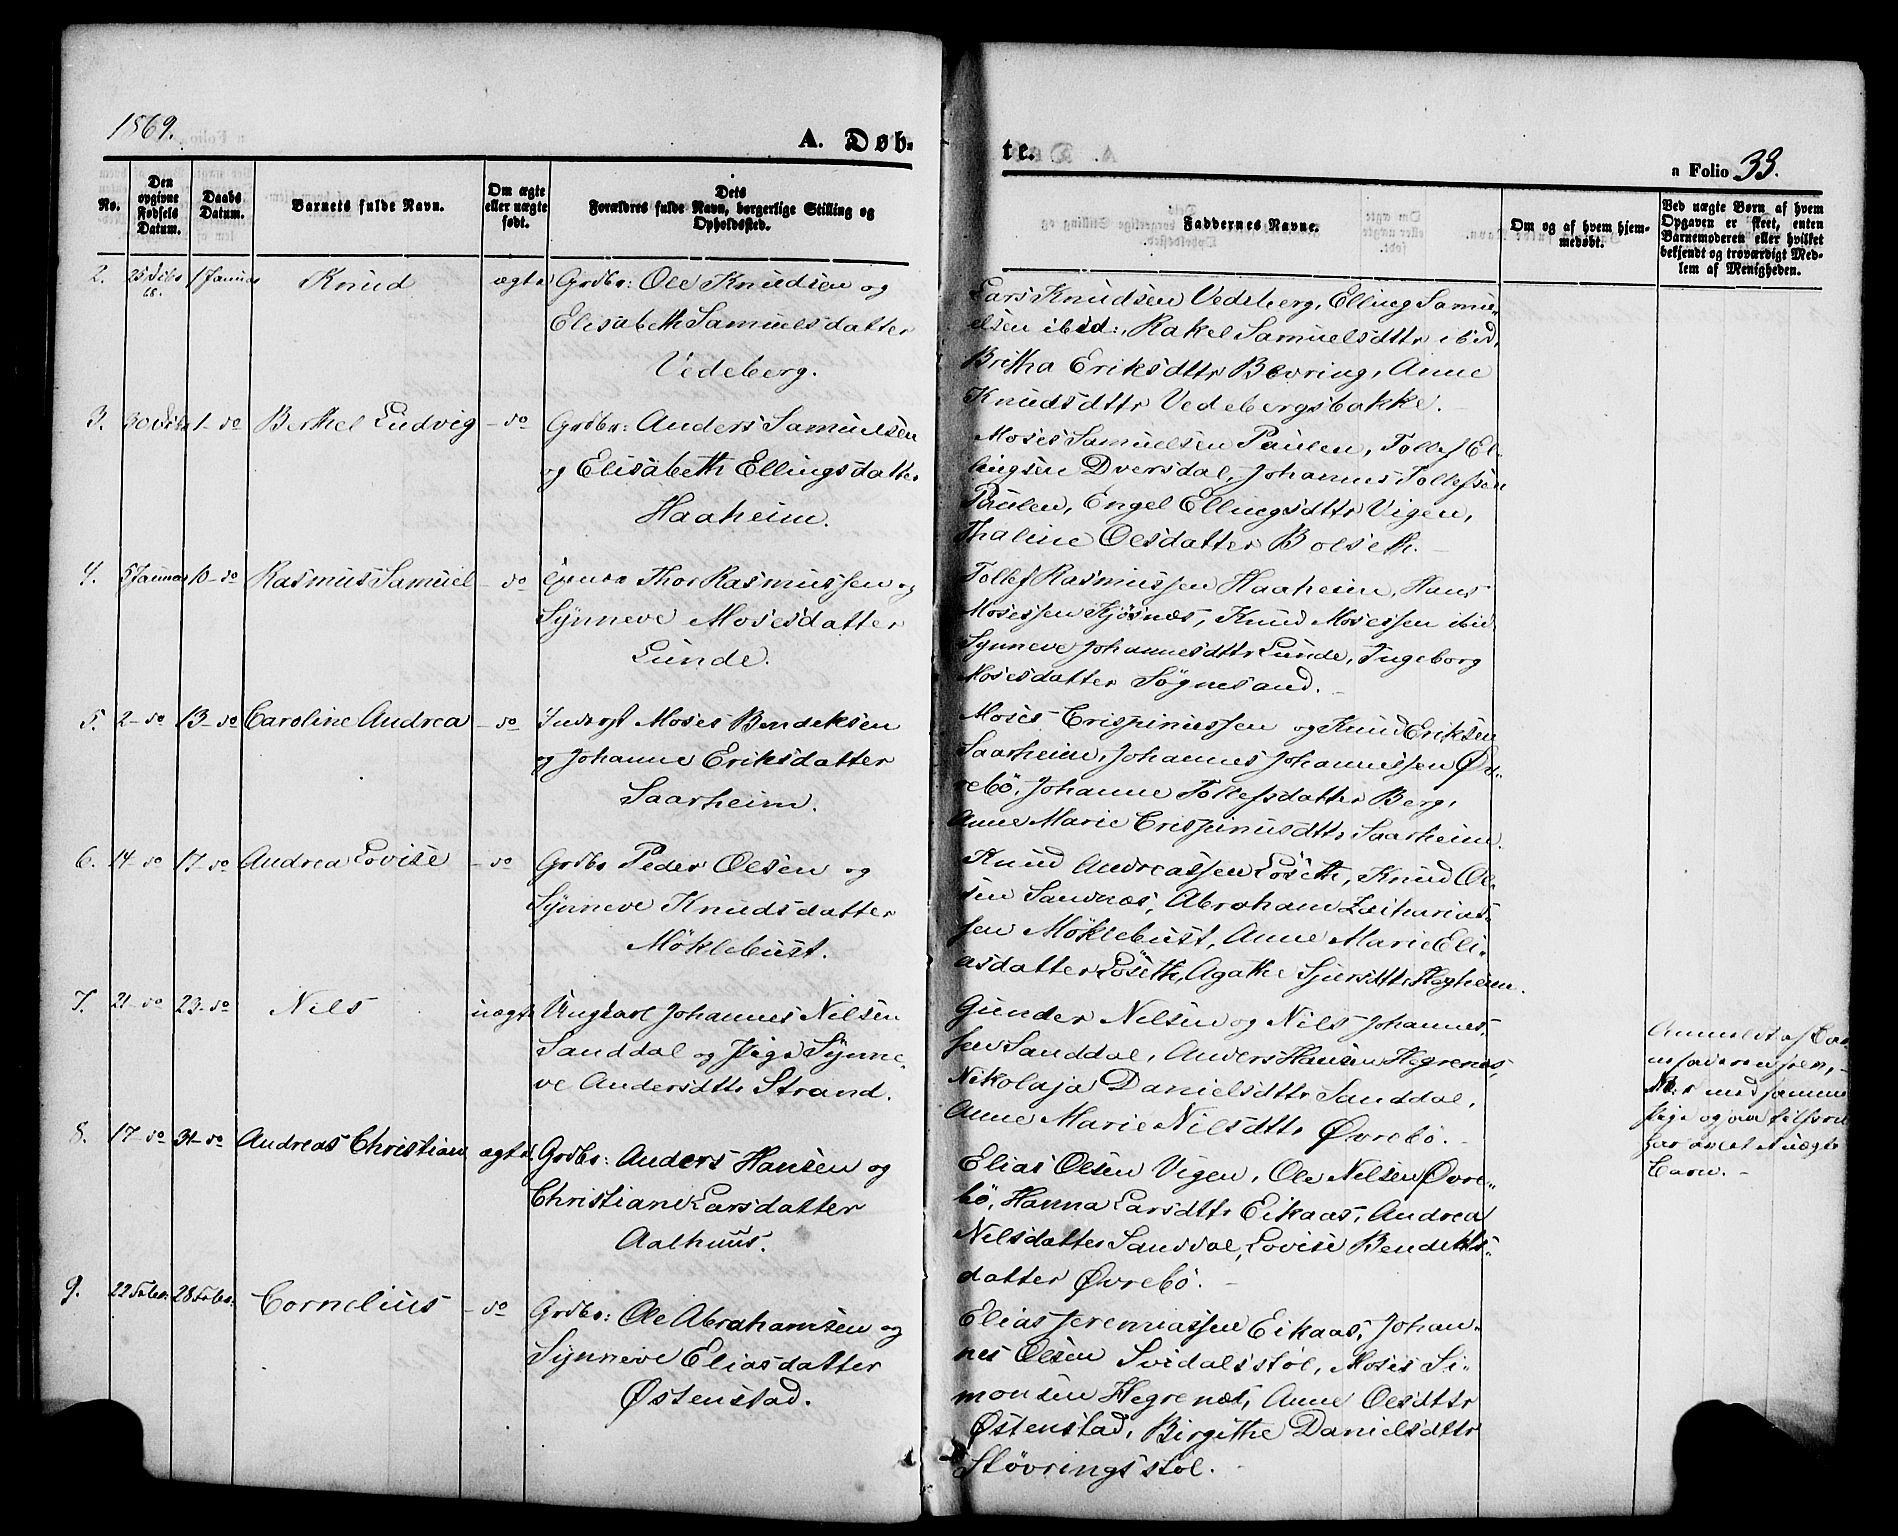 1869.
A. Døb-
te.
n Folio 33.
No.
Den
opgivne
Fødsels
Datum.
Daabs
Datum.
Barnets fulde Navn.
Om ægte
eller uægte
født.
Dets
Forældres fulde Navn, borgerlige Stilling og
Opholdssted.
Faddernes Navne.
Om og af hvem hjem-
medøbt.
Ved uægte Børn af hvem
Opgaven er skeet, enten
Barnemoderen eller hvilket
bekjendt og troværdigt Med-
lem af Menigheden.
2.
25 Debr
68.
1 Januar
Knud
ægte
Grdbr: Ole Knudsen og
Elisabeth Samuelsdatter
Vedeberg.
Lars Knudsen Vedeberg, Elling Samu-
elsen ibid:, Rakel Samuelsdttr ibid,
Britha Eriksdttr Bevring, Anne
Knudsdttr Vedebergsbakke.
3.
30 Debr
1- do
Berthel Ludvig
- do
Grdbr: Anders Samuelsen
og Elisabeth Ellingsdatter
Haaheim.
Moses Samuelsen Paulen, Tollef El-
lingsen Dversdal, Johannes Tollefsen
Paulen, Engel Ellingsdttr Vigen,
Thaline Olsdatter Bolseth.
4.
5 Januar
10- do
Rasmus Samuel
- do
Thor Rasmussen og
Synneve Mosesdatter
Lunde.
Tollef Rasmussen Haaheim, Hans
Mosessen Kjøsnæs, Knud Mosessen ibid
Synneve Johannesdttr Lunde, Ingeborg
Mosesdatter Søgnesand.
5.
2- do
13- do
Caroline Andrea
- do
Inderst Moses Bendiksen
og Johanne Eriksdatter
Saarheim.
Moses Crispinussen og Knud Eriksen
Saarheim, Johannes Johannessen Øv-
rebö, Johanne Tollefsdatter Berg,
Anne Marie Crispinusdttr Saarheim.
6.
14 do
17- do
Andrea Lovise
- do
Grdbr Peder Olsen og
Synneve Knudsdatter
Möklebust.
Knud Andreassen Löseth, Knud Ol-
sen Sandnæs, Abraham Zacharias-
sen Möklebust, Anne Marie Eli-
asdatter Löseth, Agathe Sjursdttr Hegheim.
7.
21- do
23- do
Nels
uægte
Ungkarl Johannes Nilsen
Sanddal og Pige Synne-
ve Andersdttr Strand.
Gunder Nelsen og Nels Johannes-
sen Sanddal, Anders Hansen Hegrenæs,
Nikolaja Danielsdttr Sanddal,
Anne Marie Nilsdttr Øvrebö.
Anmeldt af Bar-
nefaderen
med samme
Pige og
har avlet 1 uægte
Barn.
8.
17- do
31- do
Andreas Christian
ægte
Grdbr: Anders Hansen og
Christiane Larsdatter
Aalhuus.
Elias Olsen Vigen, Ole Nilsen Øvre-
bö, Hanna Larsdttr Eikaas, Andrea
Nelsdatter Sanddal, Lovise Bendiks-
datter Øvrebö.
9.
22 Febr:
28 Febr:
Cornelius
- do
Grdbr: Ole Abrahamsen og
Synneve Eliasdatter
Østenstad.
Elias Jeremiassen Eikaas, Johan-
nes Olsen Svidalsstöl, Moses Si-
monsen Hegrenæs, Anne Olsdttr
Østenstad, Birgithe Danielsdttr
Stövringsstöl.